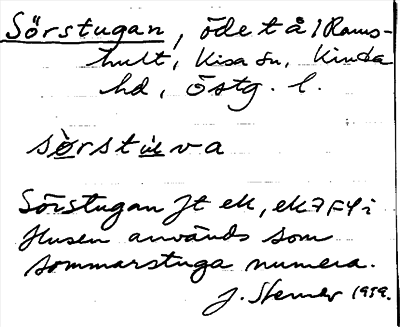 Sörstugan, öde t å / Rams-
hult, Kisa sn, Kinda
hd, Östg. l.
sørstuva
Sörstugan Jt ek, ek 7 F4 i
Husen används som
sommarstuga numera.
J. Sterner 1959.